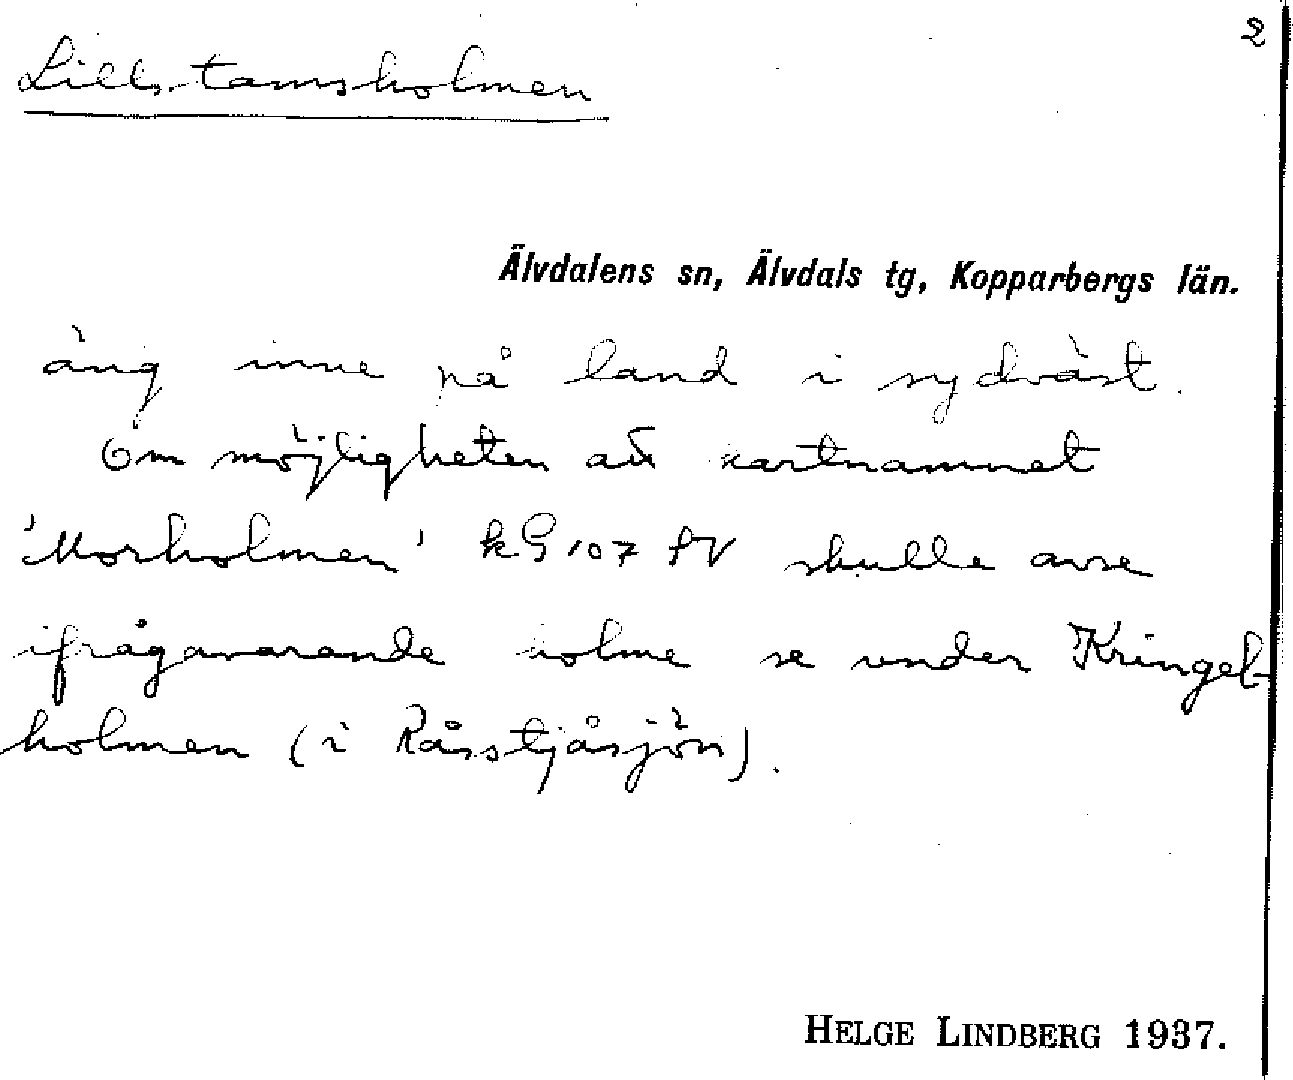 2
Lills.tamsholmen
Älvdalens sn, Älvdals tg, Kopparbergs län.
äng inne på land i sydväst.
Om möjligheten att kartnamnet
'Morholmen' kG 107 SV skulle avse
ifrågavarande holme se under Kringel-
holmen (i Råsstjåsjön).
HELGE LINDBERG 1937.